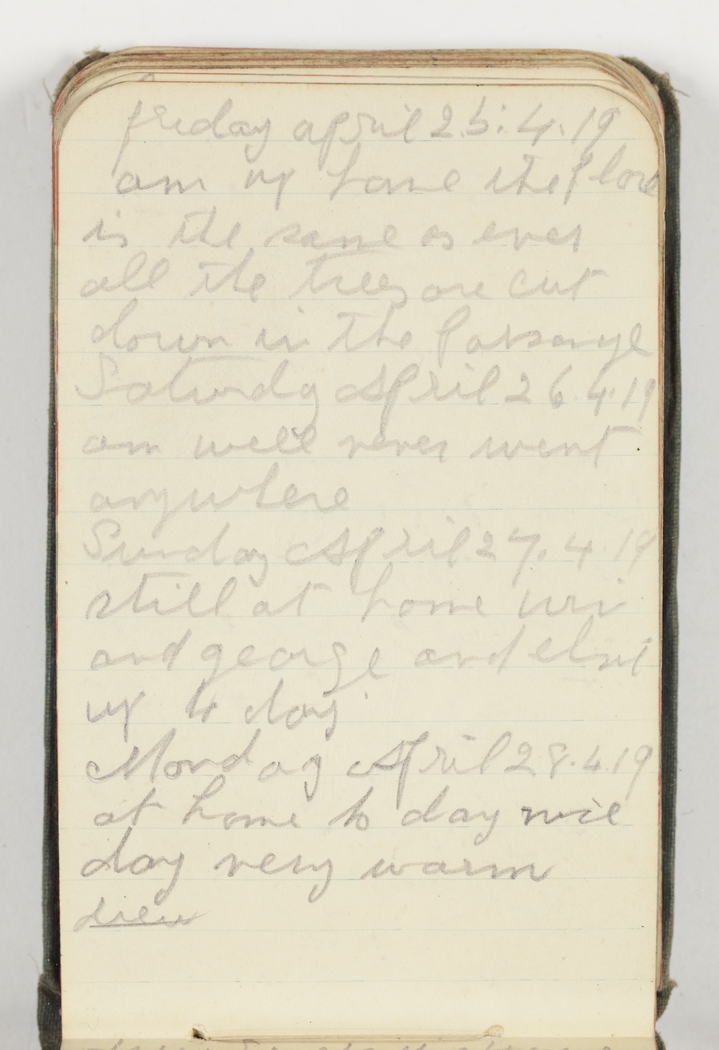 friday april 25.4.19
am up home the place
is the same as ever
all the trees are cut
down in the
Saturday April 26.4.19
am well never went
anywhere
Sunday April 27.4.19
still at home
and george and
up to day
Monday April 28.4.19
at home to day nice
day very warm